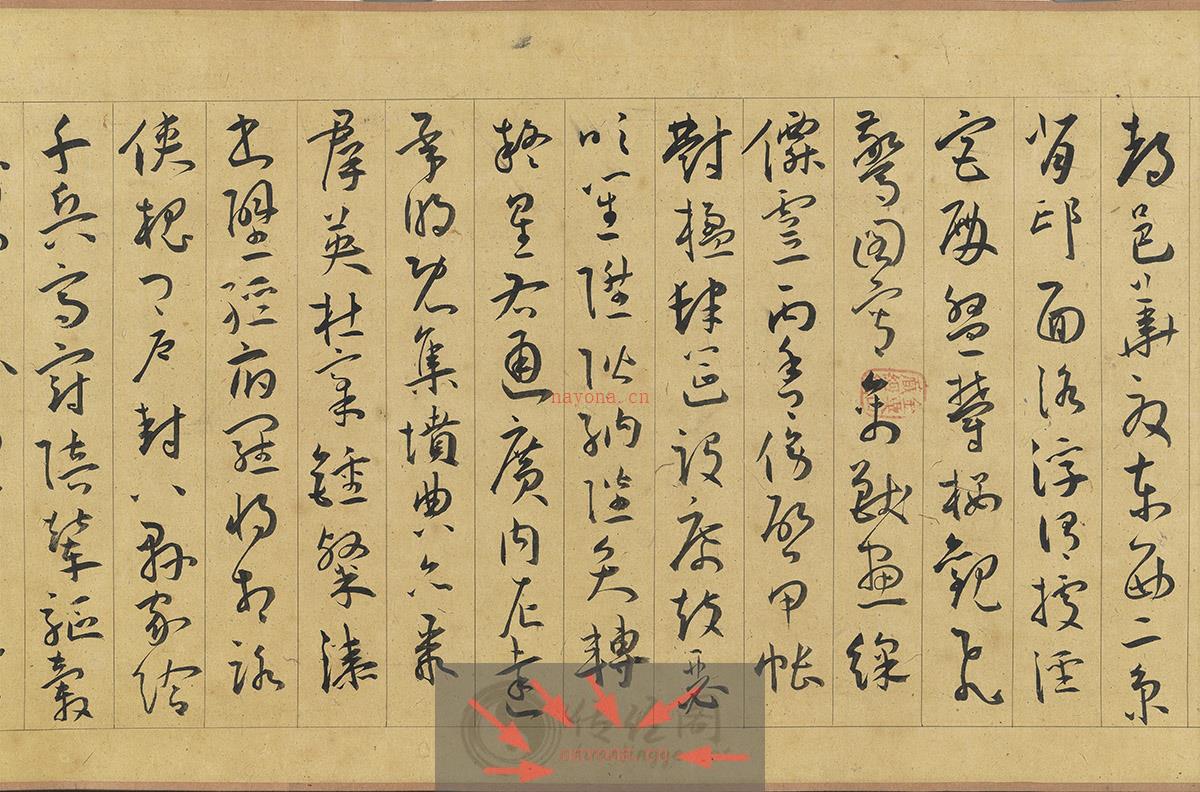 都邑華夏東西二京
背邙面洛浮渭據涇
宮殿盤鬱樓觀飛
驚圖寫禽獸畫綵
僊靈丙舍傍啟甲帳
對楹肆筵設席鼓瑟
吹笙陞階納陛弁轉
疑星右通廣內左達
承明既集墳典亦聚
羣英杜稾鍾隸漆
書壁經府羅將相路
俠槐卿戶封八縣家給
千兵高冠陪輦驅轂
nayona.cn